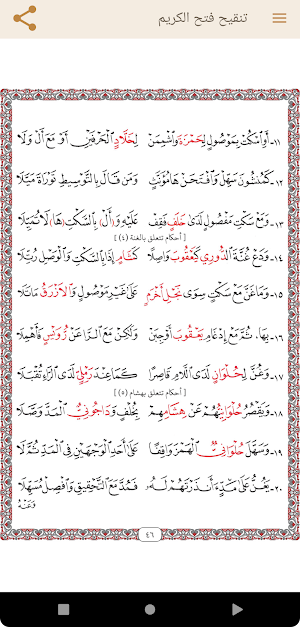 تنقيح فتح الكريم
١١- أَوِ اسْكُتْ بِمَوْصُولٍ لِحَمْزَةَ وَاشْمِمَنْ لِخَلَّادٍ الْحَرْفَيْنِ أَوْ مَعَ أَلْ وَلَا
١٢- وَمَنْ قَالَ بِالتَّوْسِيطِ تَوْرَاةَ مَيَّلَا
١٣- وَمَعْ سَكْتِ مَفْصُولٍ لَدَى خَلَفٍ فَقِفْ عَلَيْهِ وَ(أَلْ) بِالسَّكْتِ (هَا) لَا تُمَيِّلَا
[ أحكام تتعلق بالغنة (٤) ]
١٤- وَدَعْ غُنَّةَ الدُّورِي كَيَعْقُوبَ وَاصِلًا كَشَامٍ إِذَا بِالسَّكْتِ وَالْوَصْلِ رَتَّلَا
١٥- وَمَا غَنَّ مَعْ سَكْتٍ سِوَى نَجْلِ أَخْرَمٍ عَلَى غَيْرِ مَوْصُولٍ وَالْأَزْرَقُ مَا تَلَا
١٦- بِهَا، ثُمَّ مَعْ إِدْغَامِ يَعْقُوبَ أَوْجِبَنْ وَلَكِنْ مَعَ الزَّا عَنْ رُوَيْسٍ فَأَهْمِلَا
١٧- وَغُنَّ لِحُلْوَانٍ لَدَى اللَّامِ قَاصِرًا كَمَا عِنْدَ رَمْلِيٍّ لَدَى الرَّاءِ نُقِّلَا
[ أحكام تتعلق بهشام (٥) ]
١٨- وَيَقْصُرُ حُلْوَانِيُّهُمْ عَنْ هِشَامِهِمْ بِخُلْفٍ وَدَاجُونِيٌّ الْمَدَّ وَصَّلَا
١٩- وَسَهَّلَ حُلْوَانِيٌّ الْهَمْزَ وَاقِفًا عَلَى أَحَدِ الْوَجْهَيْنِ فِي الْمَدِّ ثُمَّ لَا
٢٠- يَغُنُّ عَلَى مَدٍّ ءَأَنْذَرْتَهُمْ لَهُ فَمُدَّ مَعَ التَّحْقِيقِ وَافْصِلْ مُسَهِّلَا
وَعَنْهُ
٤٦